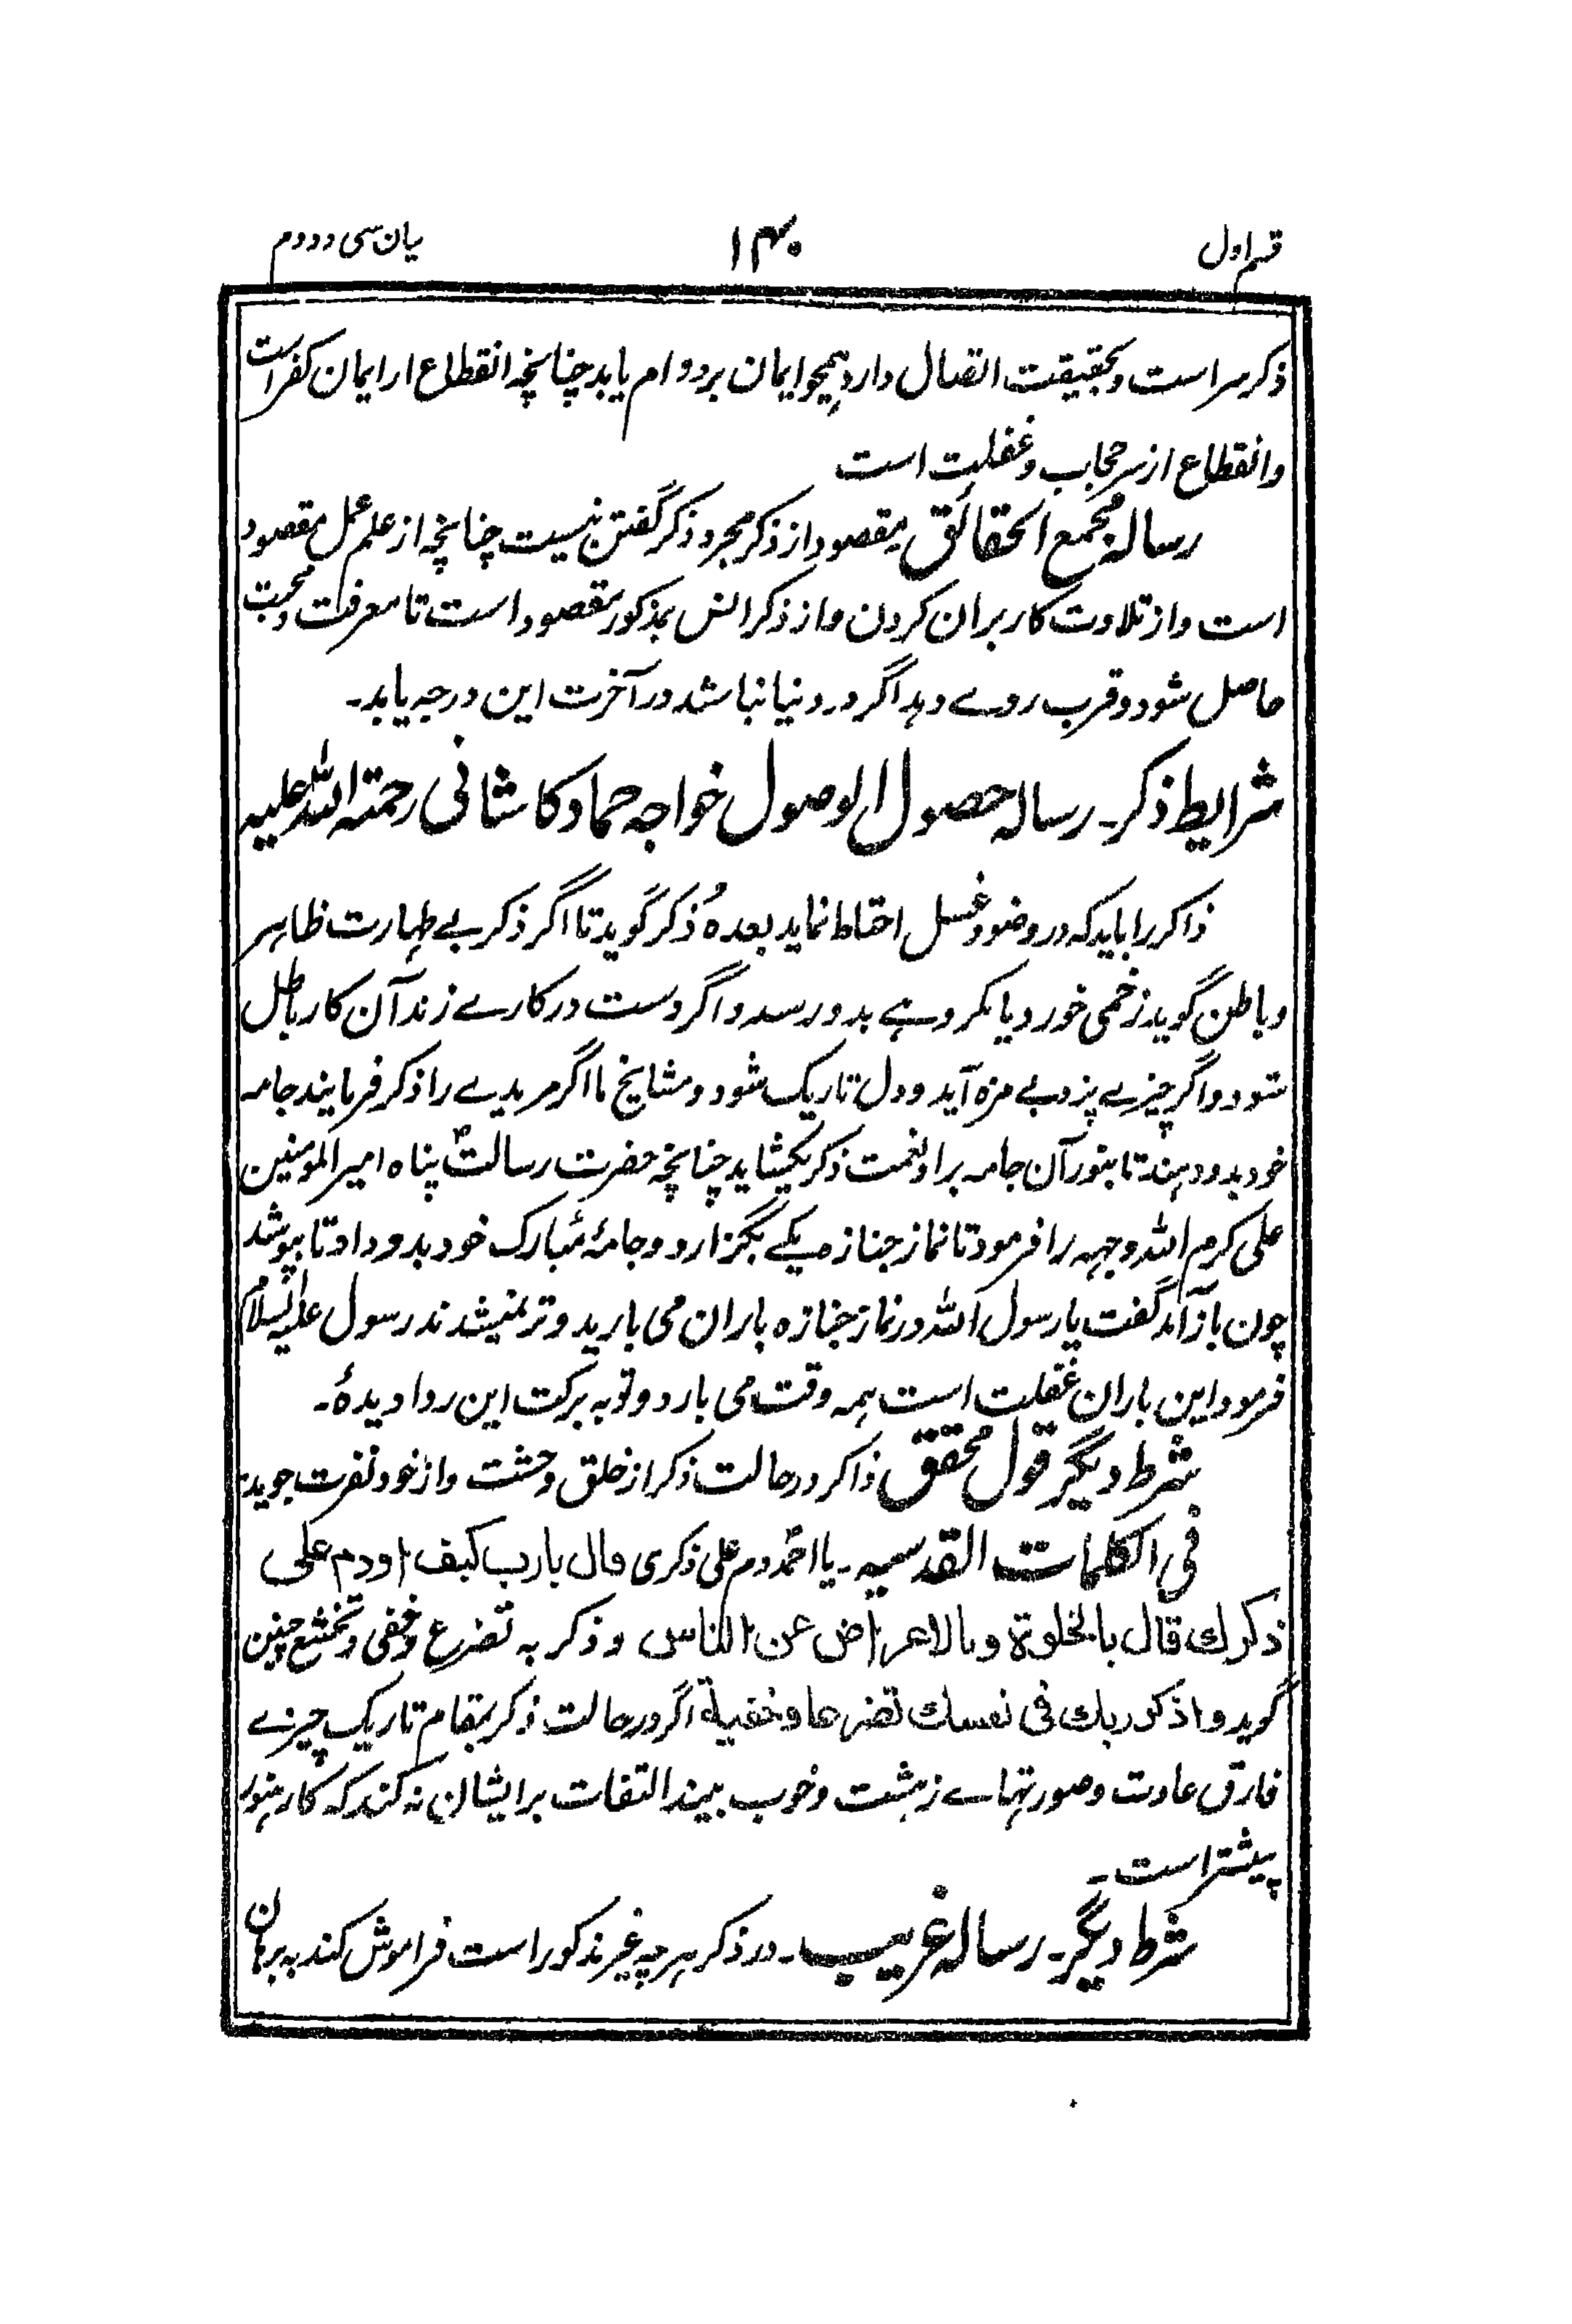 قسم اول
۱۴۰
بیان سی و دوم
ذکر سر است و بحقیقت اتصال دارد ہمچو ایمان بر دوام یابد چنانچہ انقطاع از ایمان کفر است
و انقطاع از سر حجاب و غفلت است
رسالہ مجمع الحقائق مقصود از ذکر مجرد ذکر گفتن نیست چنانچہ از علم عمل مقصود
است و از تلاوت کار بران کردن و از ذکر انس بمذکور مقصود است تا معرفت و محبت
حاصل شود و قرب روے دہد اگر در دنیا نباشد در آخرت این درجہ یابد۔
شرایط ذکر۔ رسالہ حصول الوصول خواجہ حماد کاشانی رحمتہ اللہ علیہ
ذاکر را باید کہ در وضو و غسل احتاط نماید بعدہٗ ذکر گوید تا اگر ذکر بے طہارت ظاہر
و باطن گوید زخمی خورد یا مکروہے بدو رسد و اگر دست در کارے زند آن کار باطل
شود و اگر چیزے پزد بے مزہ آید و دل تاریک شود و مشایخ ما اگر مریدے را ذکر فرمایند جامہ
خود بدو دہند تا بنور آن جامہ برا و نعمت ذکر بکشاید چنانچہ حضرت رسالت پناہ امیر المومنین
علی کرم اللہ وجہہ را فرمود تا نماز جنازہ یکے بگزارد و جامۂ مبارک خود بدو داد تا بپوشد
چون باز آمد گفت یا رسول اللہ در نماز جنازہ باران می بارید و تر نمیشدند رسول علیہ السلام
فرمود این باران غفلت است ہمہ وقت می بارد و تو بہ برکت این ردا دیدۂ۔
شرط دیگر قول محقق ذاکر در حالت ذکر از خلق وحشت و از خود نفرت جوید۔
فی الکلمات القدسیہ۔ یا احمد دم علی ذکری قال یارب کیف ادوم علی
ذکرك قال بالخلوة وبالاعراض عن الناس و ذکر بہ تضرع و خفی و تخشع چنین
گوید واذکر ربك فی نفسك تضرعا وخفیة اگر در حالت ذکر بمقام تاریک چیزے
خارق عادت و صورتہاے زشت و خوب بیند التفات بر ایشان نہ کند کہ کار ہنوز
پیشتر است۔
شرط دیگر۔ رسالہ غریب۔ در ذکر ہر چہ غیر مذکور است فراموش کند بہ برہان